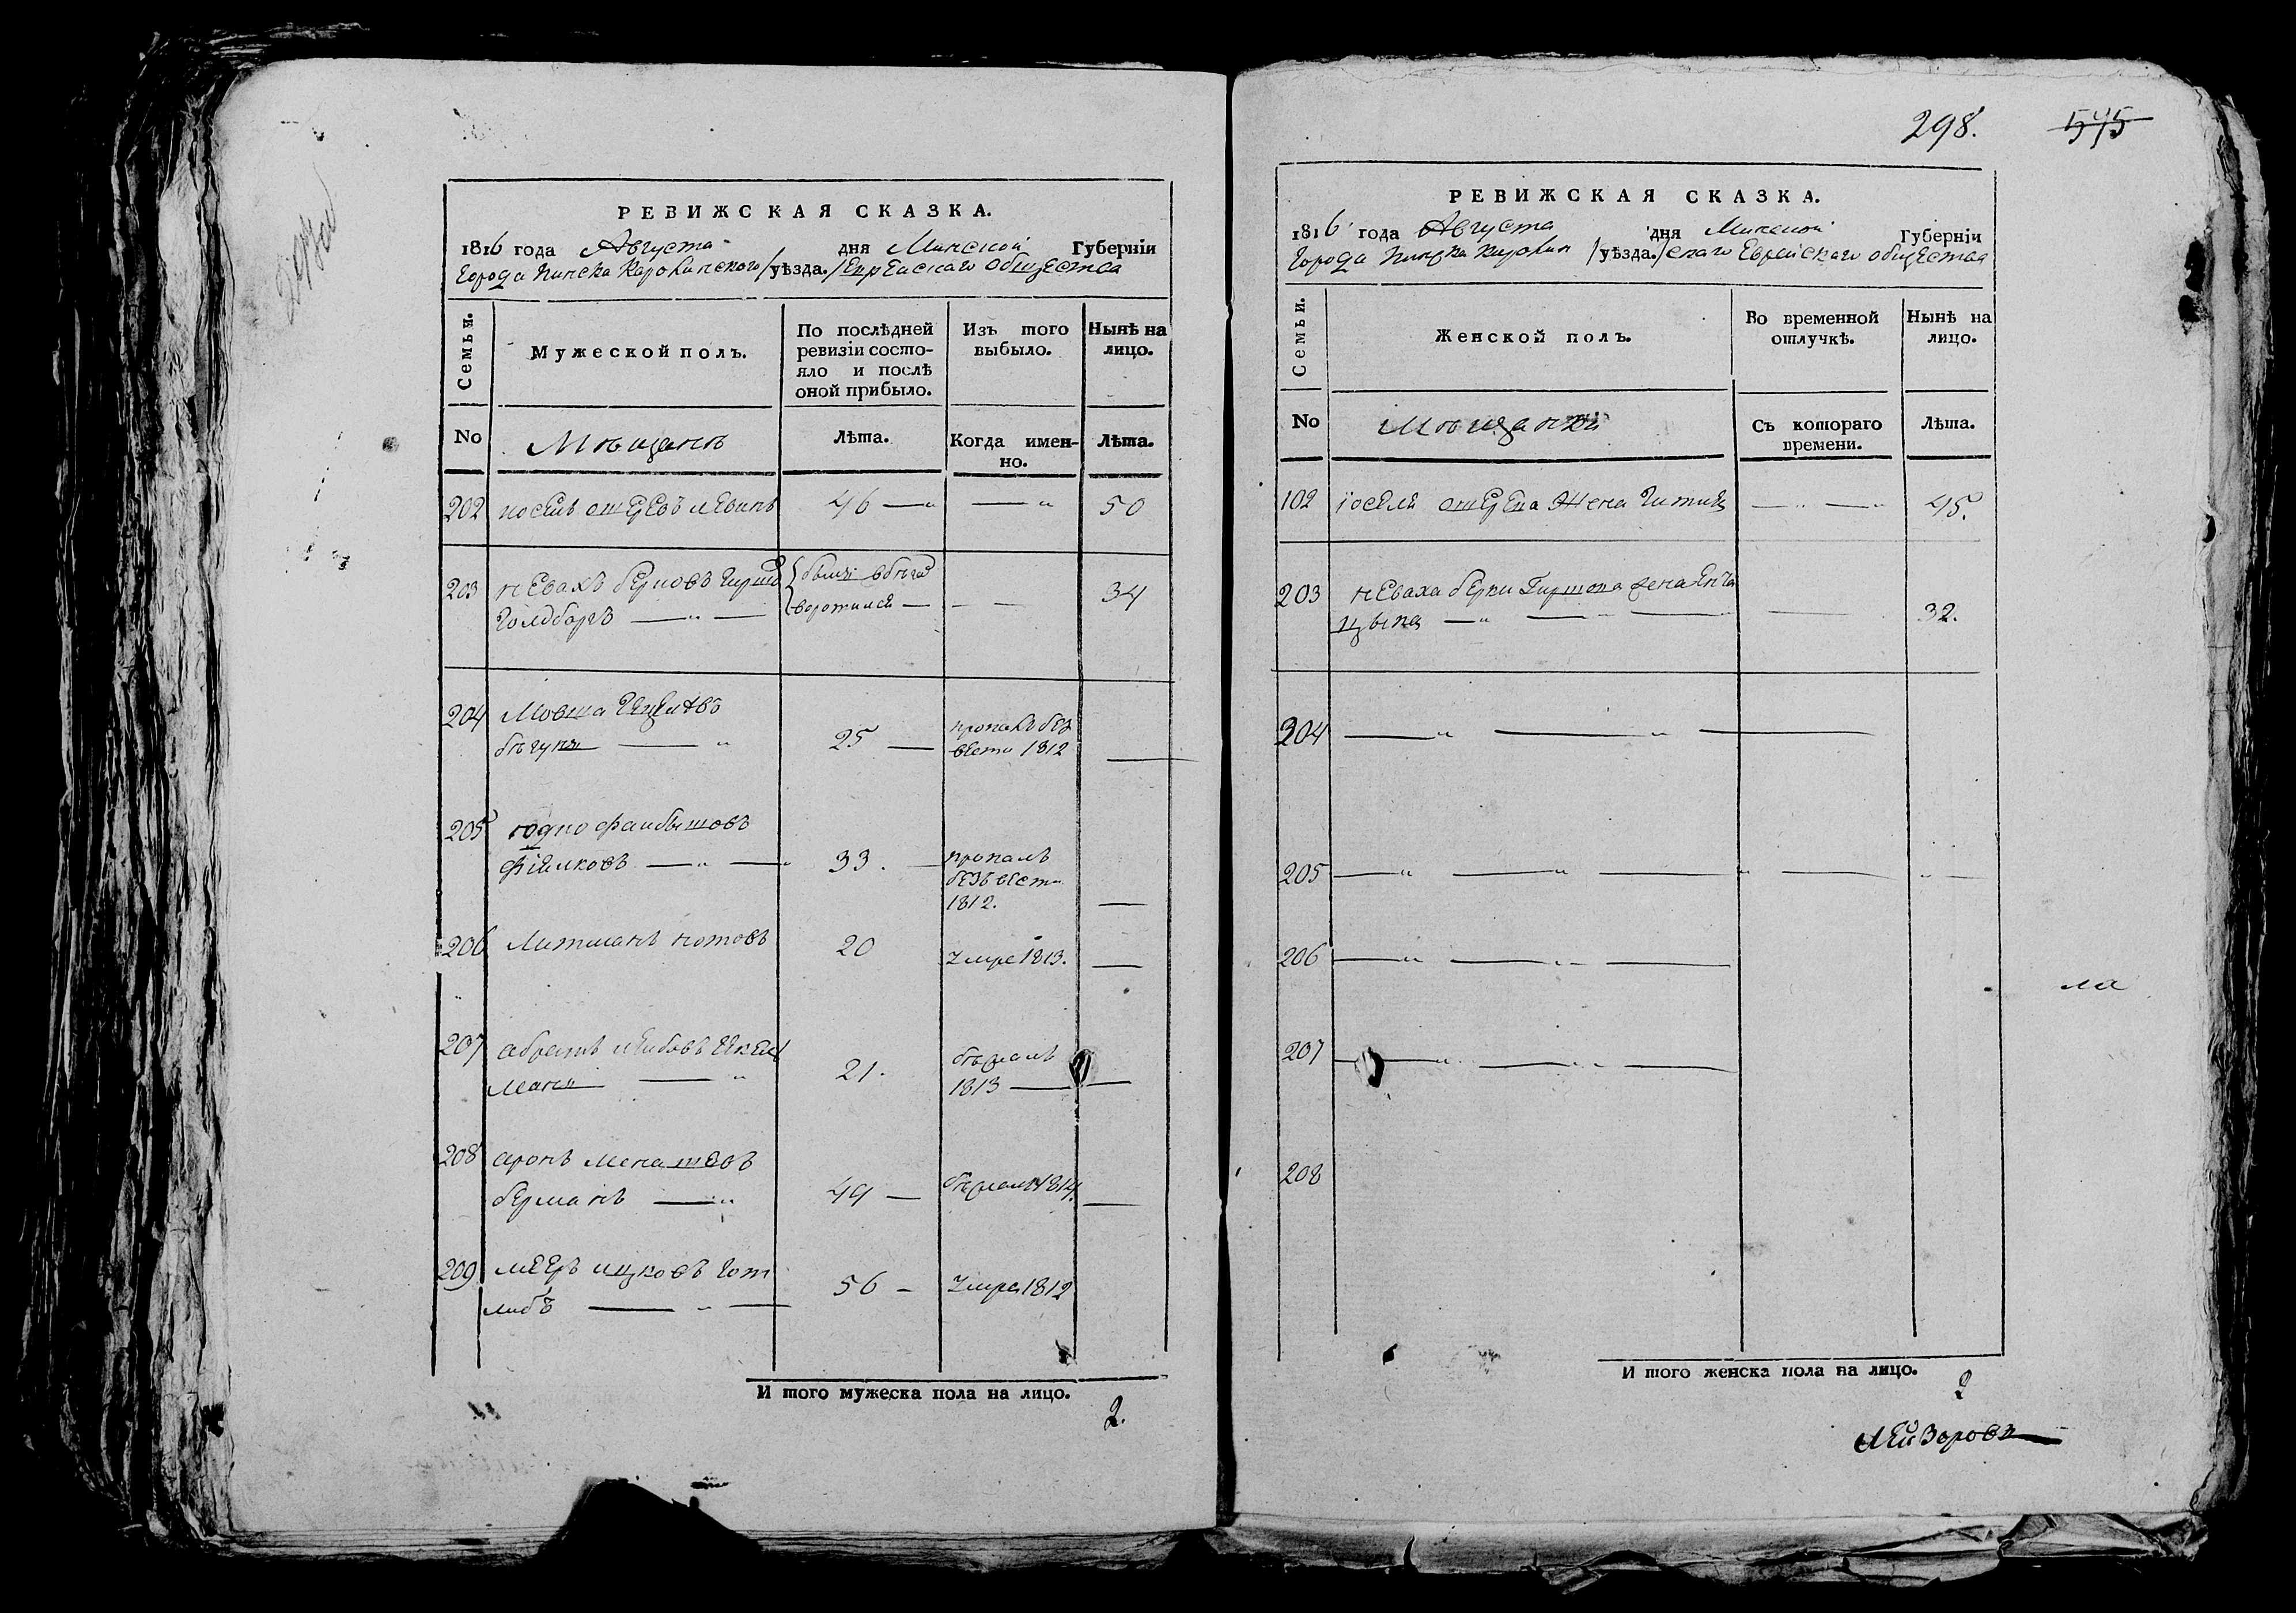 РЕВИЖСКАЯ СКАЗКА.
1816 года Августа дня Минской Губерніи
Города Пинска Каролинского /уѣзда./ Еврейскаго общества
Семьи.
Мужеской полъ.
По послѣдней ревизіи состояло и послѣ оной прибыло.
Изъ того выбыло.
Нынѣ на лицо.
No
Мѣщанъ
Лѣта.
Когда именно.
Лѣта.
202 иосель ошеровъ левинъ 46 — — 50
203 невахъ берковъ Гирш {бывші вбѣга 34
Голдбергъ — {воротился —
204 Мовша пропалъ без
бѣгунъ — 25 — вести 1812 —
205 юдко файбишовъ
— 33. — пропалъ
безъ вести
1812. —
206 Литманъ нотовъ 20 Умре 1813. —
207 абрамъ лейбовъ бѣжалъ
манъ — 21. 1813 — —
208 аронъ менашовъ
берманъ — 49 — бѣжалъ 1814. —
209 мееръ ицковъ Гот
либъ — 56 — Умре 1812
И того мужеска пола на лицо.
2.
298. 545
РЕВИЖСКАЯ СКАЗКА.
1816 года Августа дня Минской Губерніи
Города Пинска Каролин /уѣзда./ скаго Еврейскаго общества
Семьи.
Женской полъ.
Во временной отлучкѣ.
Нынѣ на лицо.
No
Мѣщанки
Съ котораго времени.
Лѣта.
102 іоселя ошерова Жена — — 45.
203 неваха берки Гиршона жена
— 32.
204 —
205 —
206 —
ла
207 —
208
И того женска пола на лицо.
2
Лейзоровъ